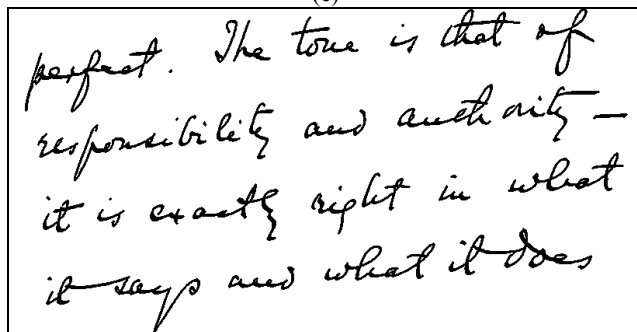 perfect. The tone is that of
responsibility and authority –
it is exactly right in what
it says and what it does